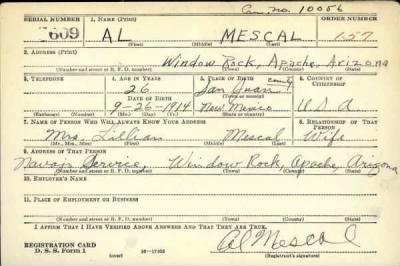 Can. no. 10056
SERIAL NUMBER 1. NAME (Print) ORDER NUMBER
609 AL MESCAL 157
(First) (Middle) (Last)
2. ADDRESS (Print)
Window Rock, Apache, Arizona
(Number and street or R. F. D. number) (Town) (County) (State)
3. TELEPHONE 4. AGE IN YEARS 5. PLACE OF BIRTH 6. COUNTRY OF CITIZENSHIP
26 San Juan County
DATE OF BIRTH (Town or county)
9-26-1914 New Mexico U S A
(Exchange) (Number) (Mo.) (Day) (Yr.) (State or country)
7. NAME OF PERSON WHO WILL ALWAYS KNOW YOUR ADDRESS 8. RELATIONSHIP OF THAT PERSON
Mrs. Lillian Mescal Wife
(Mr., Mrs., Miss) (First) (Middle) (Last)
9. ADDRESS OF THAT PERSON
Navajo Service, Window Rock, Apache, Arizona
(Number and street or R. F. D. number) (Town) (County) (State)
10. EMPLOYER'S NAME
11. PLACE OF EMPLOYMENT OR BUSINESS
(Number and street or R. F. D. number) (Town) (County) (State)
I AFFIRM THAT I HAVE VERIFIED ABOVE ANSWERS AND THAT THEY ARE TRUE.
REGISTRATION CARD Al Mescal
D. S. S. Form 1 (over) 16-17105 (Registrant's signature)